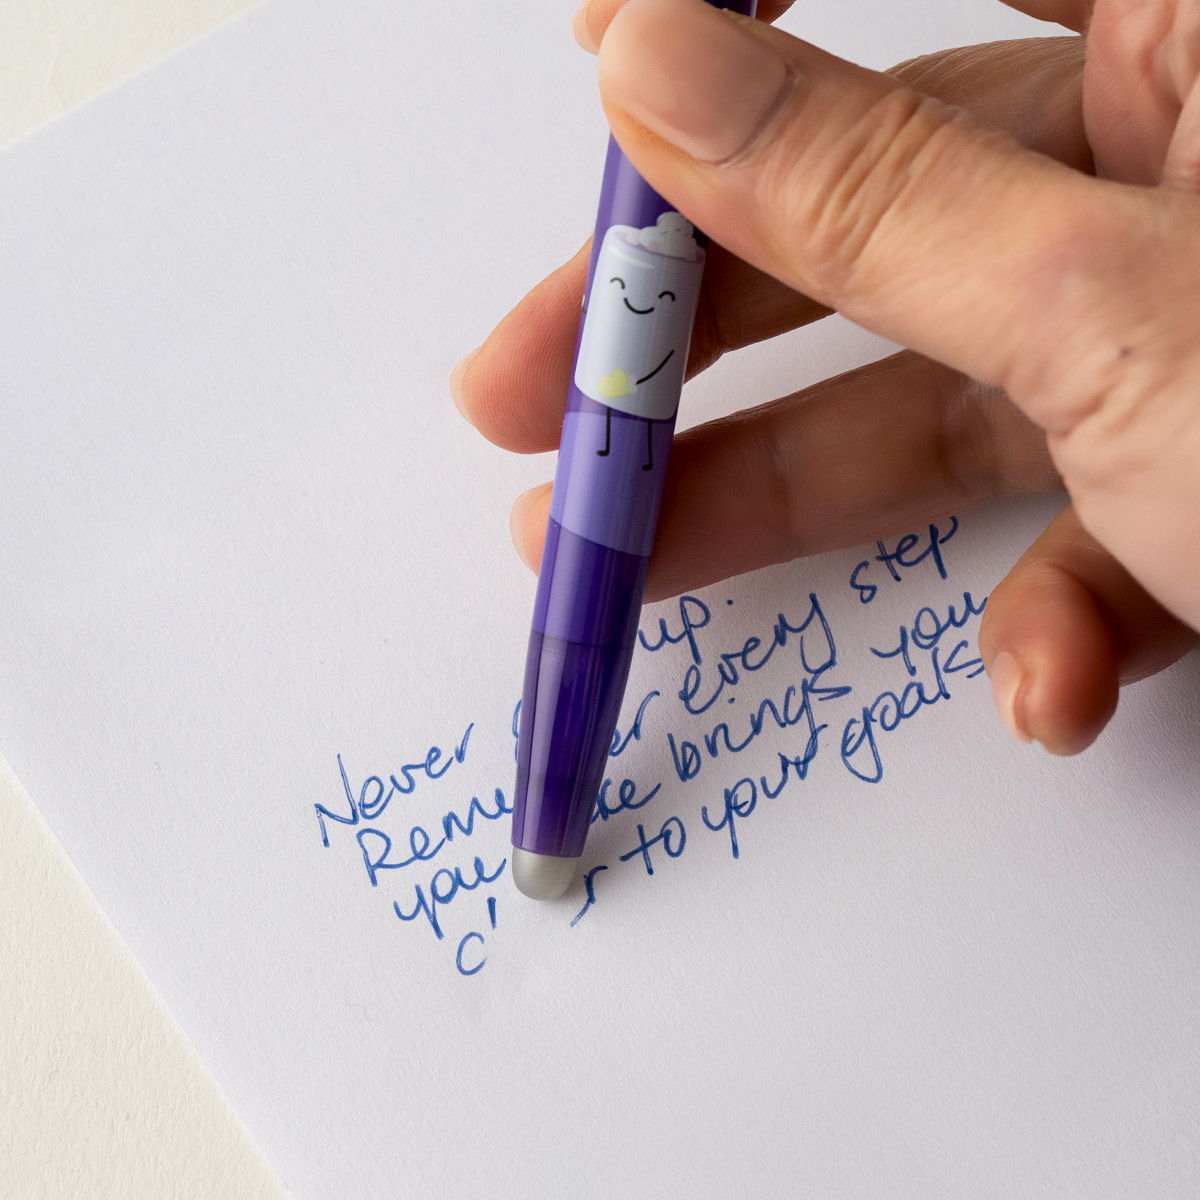 Never up.
Remember every step
you brings you
to your goals